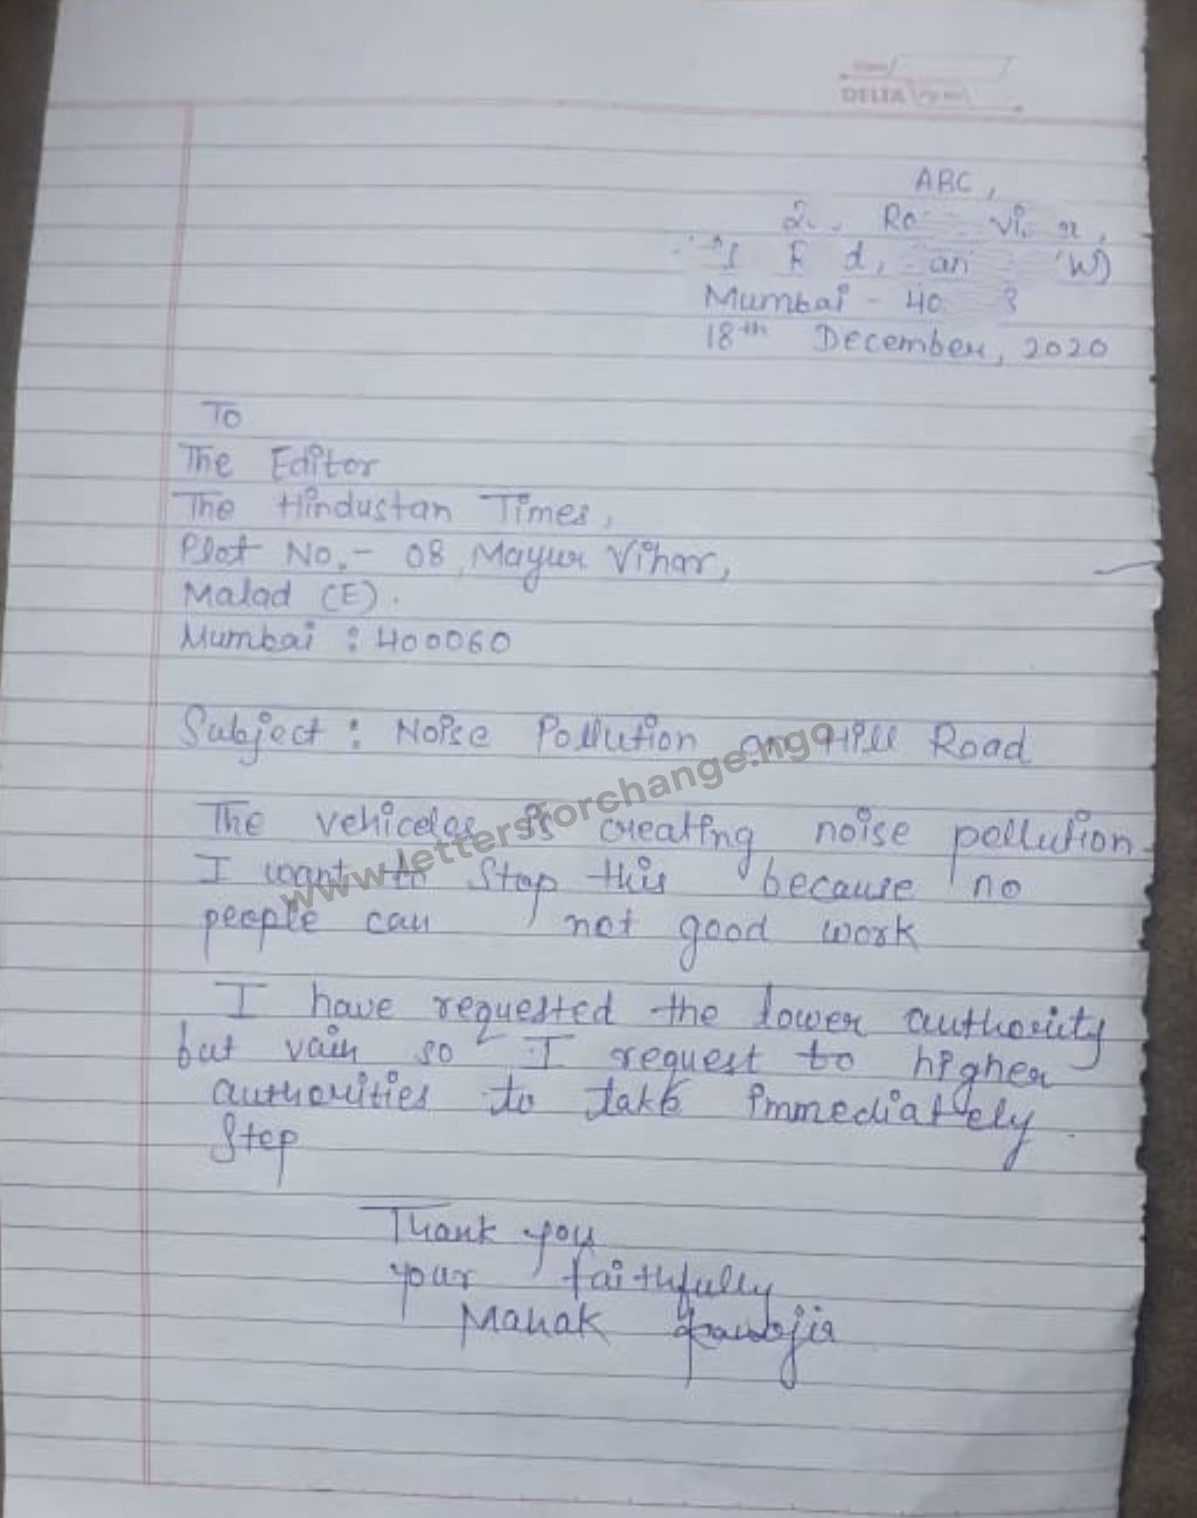 DELTA
ABC,
Mumbai - 40 3
18th December, 2020
To
The Editor
The Hindustan Times,
Plot No.- 08, Mayur Vihar,
Malad (E).
Mumbai : 400060
Subject : Noise Pollution on Hill Road
www.lettersforchange.ngo
The vehiceles is creating noise pollution.
I want to stop this because no
people can not good work
I have requested the lower authority
but vain so I request to higher
authorities to take immediately
step
Thank you
your faithfully
Mahak